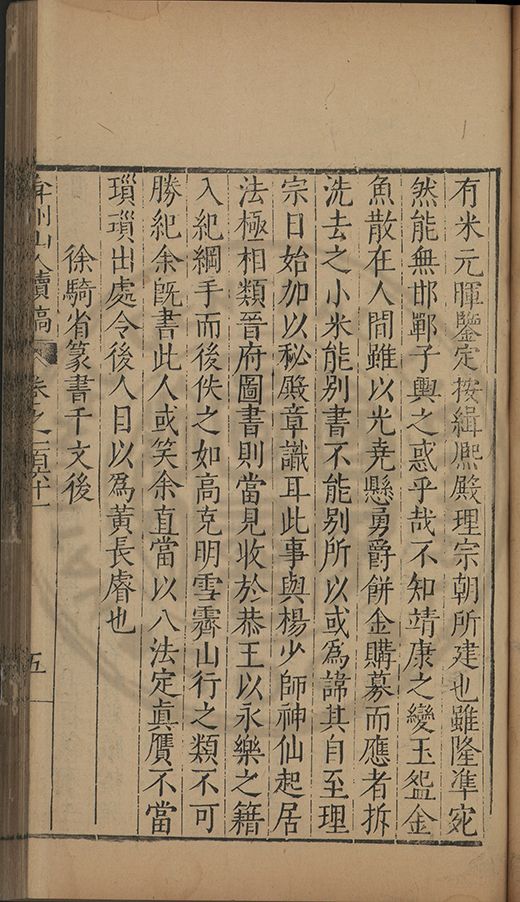 有米元暉鑒定按緝熙殿理宗朝所建也雖隆準宛
然能無邯鄲子輿之惑乎哉不知靖康之變玉盌金
魚散在人間雖以光堯懸勇爵餅金購募而應者拆
洗去之小米能別書不能別所以或為諱其自至理
宗日始加以秘殿章識耳此事與楊少師神仙起居
法極相類晉府圖書則當見收於恭王以永樂之籍
入紀綱手而後佚之如高克明雪霽山行之類不可
勝紀余旣書此人或笑余直當以八法定眞贗不當
瑣瑣出處令後人目以爲黃長睿也
徐騎省篆書千文後
弇州山人續稿 卷之一百六十一
五